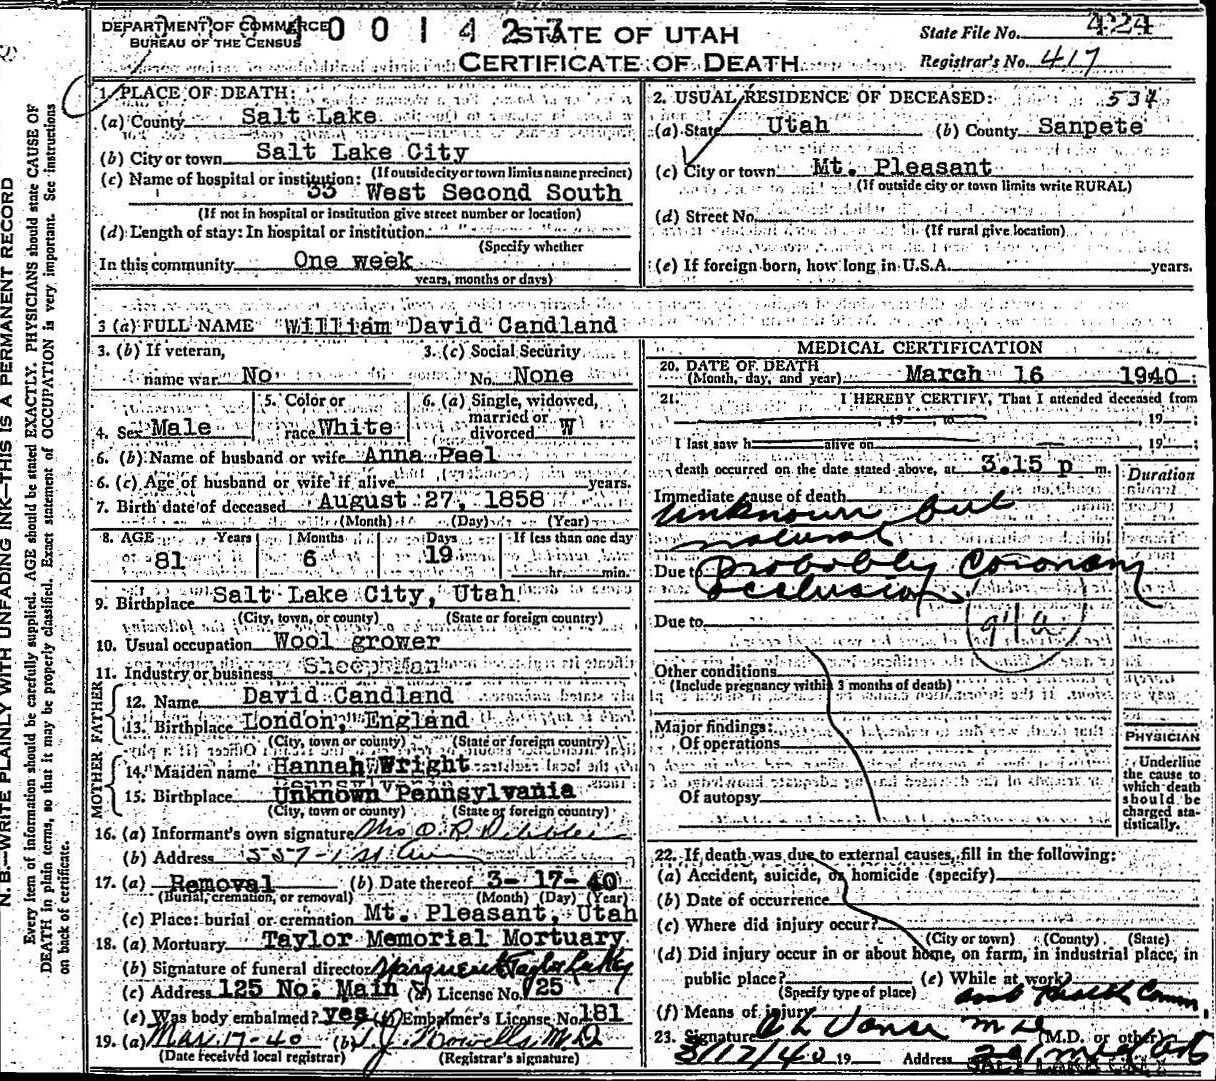 DEPARTMENT OF COMMERCE
BUREAU OF THE CENSUS
4 0 0 1 4 2 7
STATE OF UTAH
CERTIFICATE OF DEATH
State File No. 424
Registrar's No. 417
N. B.—WRITE PLAINLY WITH UNFADING INK—THIS IS A PERMANENT RECORD
Every item of information should be carefully supplied. AGE should be stated EXACTLY. PHYSICIANS should state CAUSE OF
DEATH in plain terms, so that it may be properly classified. Exact statement of OCCUPATION is very important. See instructions
on back of certificate.
1. PLACE OF DEATH:
(a) County Salt Lake
(b) City or town Salt Lake City
(If outside city or town limits name precinct)
(c) Name of hospital or institution:
33 West Second South
(If not in hospital or institution give street number or location)
(d) Length of stay: In hospital or institution
(Specify whether
In this community One week
years, months or days)
2. USUAL RESIDENCE OF DECEASED: 534
(a) State Utah (b) County Sanpete
(c) City or town Mt. Pleasant
(If outside city or town limits write RURAL)
(d) Street No.
(If rural give location)
(e) If foreign born, how long in U.S.A. years.
3 (a) FULL NAME William David Candland
3. (b) If veteran,
name war No
3. (c) Social Security
No. None
4. Sex Male
5. Color or
race White
6. (a) Single, widowed,
married or
divorced W
6. (b) Name of husband or wife Anna Peel
6. (c) Age of husband or wife if alive years.
7. Birth date of deceased August 27, 1858
(Month) (Day) (Year)
8. AGE Years Months Days If less than one day
81 6 19 hr. min.
9. Birthplace Salt Lake City, Utah
(City, town, or county) (State or foreign country)
10. Usual occupation Wool grower
11. Industry or business Sheep Man
FATHER
12. Name David Candland
13. Birthplace London, England
(City, town or county) (State or foreign country)
MOTHER
14. Maiden name Hannah Wright
15. Birthplace Unknown Pennsylvania
(City, town or county) (State or foreign country)
16. (a) Informant's own signature Mrs O. R.
(b) Address 557-1st Ave
17. (a) Removal (b) Date thereof 3-17-40
(Burial, cremation, or removal) (Month) (Day) (Year)
(c) Place: burial or cremation Mt. Pleasant, Utah
18. (a) Mortuary Taylor Memorial Mortuary
(b) Signature of funeral director Marguerite Taylor
(c) Address 125 No. Main (d) License No. 25
(e) Was body embalmed? yes (f) Embalmer's License No. 181
19. (a) Mar 17-40 (b) T. J. Howells M.D.
(Date received local registrar) (Registrar's signature)
MEDICAL CERTIFICATION
20. DATE OF DEATH
(Month, day, and year) March 16 1940
21. I HEREBY CERTIFY, That I attended deceased from
, 19 , to , 19 ;
I last saw h alive on , 19 ;
death occurred on the date stated above, at 3.15 p m.
Duration
Immediate cause of death
Unknown but
natural
Due to Probably Coronary
occlusion
Due to 94a
Other conditions
(Include pregnancy within 3 months of death)
Major findings:
Of operations
Of autopsy
PHYSICIAN
Underline
the cause to
which death
should be
charged sta-
tistically.
22. If death was due to external causes, fill in the following:
(a) Accident, suicide, or homicide (specify)
(b) Date of occurrence
(c) Where did injury occur?
(City or town) (County) (State)
(d) Did injury occur in or about home, on farm, in industrial place, in
public place? (e) While at work?
(Specify type of place)
(f) Means of injury Health Comm
23. Signature M D (M.D. or other)
3/17/40 19 Address
SALT LAKE CITY